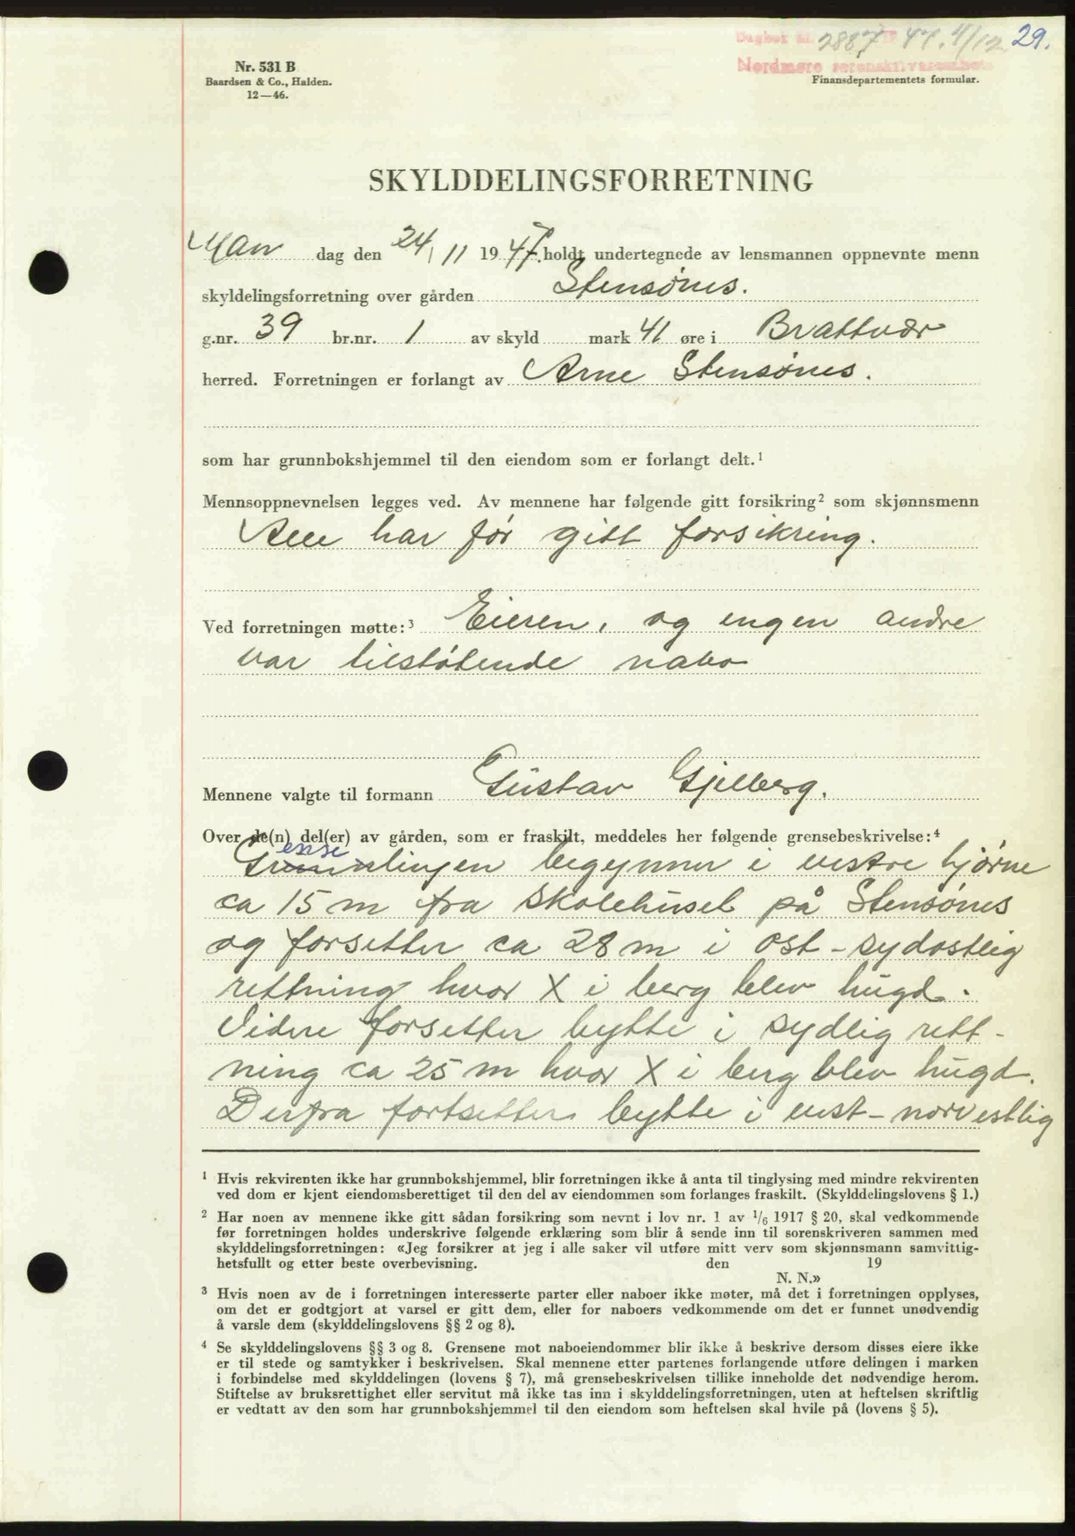 Dagbok nr. 2887, 47. 4/12 29.
Nordmøre sorenskriverembete
Nr. 531 B
Baardsen & Co., Halden.
12—46.
Finansdepartementets formular.
SKYLDDELINGSFORRETNING
Man dag den 24/11 1947. holdt undertegnede av lensmannen oppnevnte menn
skyldelingsforretning over gården Stensønes.
g.nr. 39 br.nr. 1 av skyld mark 41 øre i Brattvær
herred. Forretningen er forlangt av Arne Stensønes.
som har grunnbokshjemmel til den eiendom som er forlangt delt.¹
Mennsoppnevnelsen legges ved. Av mennene har følgende gitt forsikring² som skjønnsmenn
Alle har før gitt forsikring.
Ved forretningen møtte:³ Eieren, og engen andre
var tilstøtende nabo
Mennene valgte til formann Gustav Gjelberg.
Over de(n) del(er) av gården, som er fraskilt, meddeles her følgende grensebeskrivelse:⁴
Grenselingen begynner i vestre hjørne
ca 15 m fra skolehuset på Stensønes
og forsetter ca 28 m i ost-sydostlig
rettning hvor X i berg blev hugd.
Videre forsetter bytte i sydlig rett-
ning ca 25 m hvor X i berg blev hugd.
Derfra fortsetter bytte i vest-norvestlig
¹ Hvis rekvirenten ikke har grunnbokshjemmel, blir forretningen ikke å anta til tinglysing med mindre rekvirenten
ved dom er kjent eiendomsberettiget til den del av eiendommen som forlanges fraskilt. (Skylddelingslovens § 1.)
² Har noen av mennene ikke gitt sådan forsikring som nevnt i lov nr. 1 av ¹/₆ 1917 § 20, skal vedkommende
før forretningen holdes underskrive følgende erklæring som blir å sende inn til sorenskriveren sammen med
skylddelingsforretningen: «Jeg forsikrer at jeg i alle saker vil utføre mitt verv som skjønnsmann samvittig-
hetsfullt og etter beste overbevisning. den 19
N. N.»
³ Hvis noen av de i forretningen interesserte parter eller naboer ikke møter, må det i forretningen opplyses,
om det er godtgjort at varsel er gitt dem, eller for naboers vedkommende om det er funnet unødvendig
å varsle dem (skylddelingslovens §§ 2 og 8).
⁴ Se skylddelingslovens §§ 3 og 8. Grensene mot naboeiendommer blir ikke å beskrive dersom disses eiere ikke
er til stede og samtykker i beskrivelsen. Skal mennene etter partenes forlangende utføre delingen i marken
i forbindelse med skylddelingen (lovens § 7), må grensebeskrivelsen tillike inneholde det nødvendige herom.
Stiftelse av bruksrettighet eller servitut må ikke tas inn i skylddelingsforretningen, uten at heftelsen skriftlig
er vedtatt av den som har grunnbokshjemmel til den eiendom som heftelsen skal hvile på (lovens § 5).